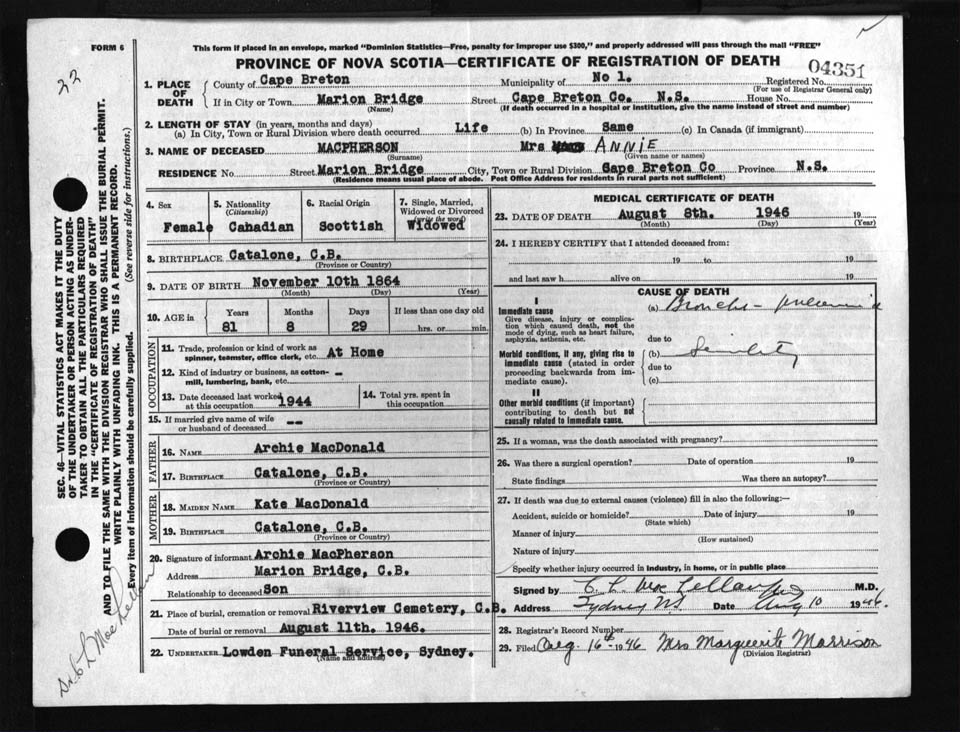 FORM 6
This form if placed in an envelope, marked "Dominion Statistics—Free, penalty for improper use $300," and properly addressed will pass through the mail "FREE"
PROVINCE OF NOVA SCOTIA—CERTIFICATE OF REGISTRATION OF DEATH
04351
22
1. PLACE OF DEATH
County of Cape Breton Municipality of No 1. Registered No.
(For use of Registrar General only)
If in City or Town Marion Bridge Street Cape Breton Co. N.S. House No.
(Name) (If death occurred in a hospital or institution, give the name instead of street and number)
2. LENGTH OF STAY (in years, months and days)
(a) In City, Town or Rural Division where death occurred Life (b) In Province Same (c) In Canada (if immigrant)
3. NAME OF DECEASED MACPHERSON Mrs ANNIE
(Surname) (Given name or names)
RESIDENCE No. Street Marion Bridge City, Town or Rural Division Cape Breton Co Province N.S.
(Residence means usual place of abode. Post Office Address for residents in rural parts not sufficient)
4. Sex Female
5. Nationality (Citizenship) Canadian
6. Racial Origin Scottish
7. Single, Married, Widowed or Divorced (write the word) Widowed
8. BIRTHPLACE Catalone, C.B.
(Province or Country)
9. DATE OF BIRTH November 10th 1864
(Month) (Day) (Year)
10. AGE in Years Months Days If less than one day old
81 8 29 hrs. or min.
OCCUPATION
11. Trade, profession or kind of work as spinner, teamster, office clerk, etc. At Home
12. Kind of industry or business, as cotton-mill, lumbering, bank, etc. -
13. Date deceased last worked at this occupation 1944
14. Total yrs. spent in this occupation
15. If married give name of wife or husband of deceased --
FATHER
16. NAME Archie MacDonald
17. BIRTHPLACE Catalone, C.B.
(Province or Country)
MOTHER
18. MAIDEN NAME Kate MacDonald
19. BIRTHPLACE Catalone, C.B.
(Province or Country)
20. Signature of informant Archie MacPherson
Address Marion Bridge, C.B.
Relationship to deceased Son
21. Place of burial, cremation or removal Riverview Cemetery, C.B.
Date of burial or removal August 11th. 1946.
22. UNDERTAKER Lowden Funeral Service, Sydney.
(Name and Address)
MEDICAL CERTIFICATE OF DEATH
23. DATE OF DEATH August 8th. 1946 19
(Month) (Day) (Year)
24. I HEREBY CERTIFY that I attended deceased from:
19 to 19
and last saw h alive on 19
CAUSE OF DEATH
I
Immediate cause
Give disease, injury or complication which caused death, not the mode of dying, such as heart failure, asphyxia, asthenia, etc.
(a) Broncho-pneumonia
due to
Morbid conditions, if any, giving rise to immediate cause (stated in order proceeding backwards from immediate cause).
(b) Senility
due to
(c)
II
Other morbid conditions (if important) contributing to death but not causally related to immediate cause.
25. If a woman, was the death associated with pregnancy?
26. Was there a surgical operation? Date of operation 19
State findings Was there an autopsy?
27. If death was due to external causes (violence) fill in also the following:—
Accident, suicide or homicide? Date of injury 19
(State which)
Manner of injury
(How sustained)
Nature of injury
Specify whether injury occurred in industry, in home, or in public place
Signed by C. L. MacLellan M.D.
Address Sydney NS Date Aug 10 1946.
28. Registrar's Record Number
29. Filed Aug. 16th 1946 Mrs Marguerite Morrison
(Division Registrar)
SEC. 46—VITAL STATISTICS ACT MAKES IT THE DUTY
OF THE UNDERTAKER OR PERSON ACTING AS UNDER-
TAKER TO OBTAIN ALL THE PARTICULARS REQUIRED
IN THE "CERTIFICATE OF REGISTRATION OF DEATH"
AND TO FILE THE SAME WITH THE DIVISION REGISTRAR WHO SHALL ISSUE THE BURIAL PERMIT.
WRITE PLAINLY WITH UNFADING INK. THIS IS A PERMANENT RECORD.
Every item of information should be carefully supplied. (See reverse side for instructions.)
Dr. C L MacLellan